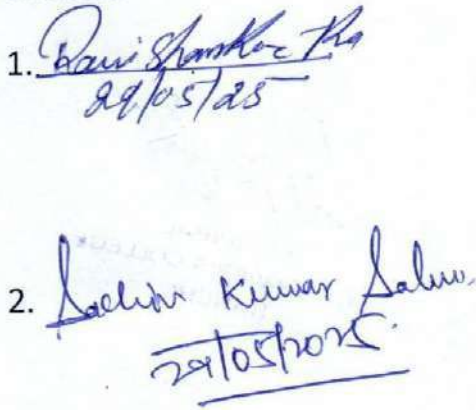 1. Ravi Shankar Jha
29/05/25
2. Sachin Kumar Sahu.
29/05/2025.